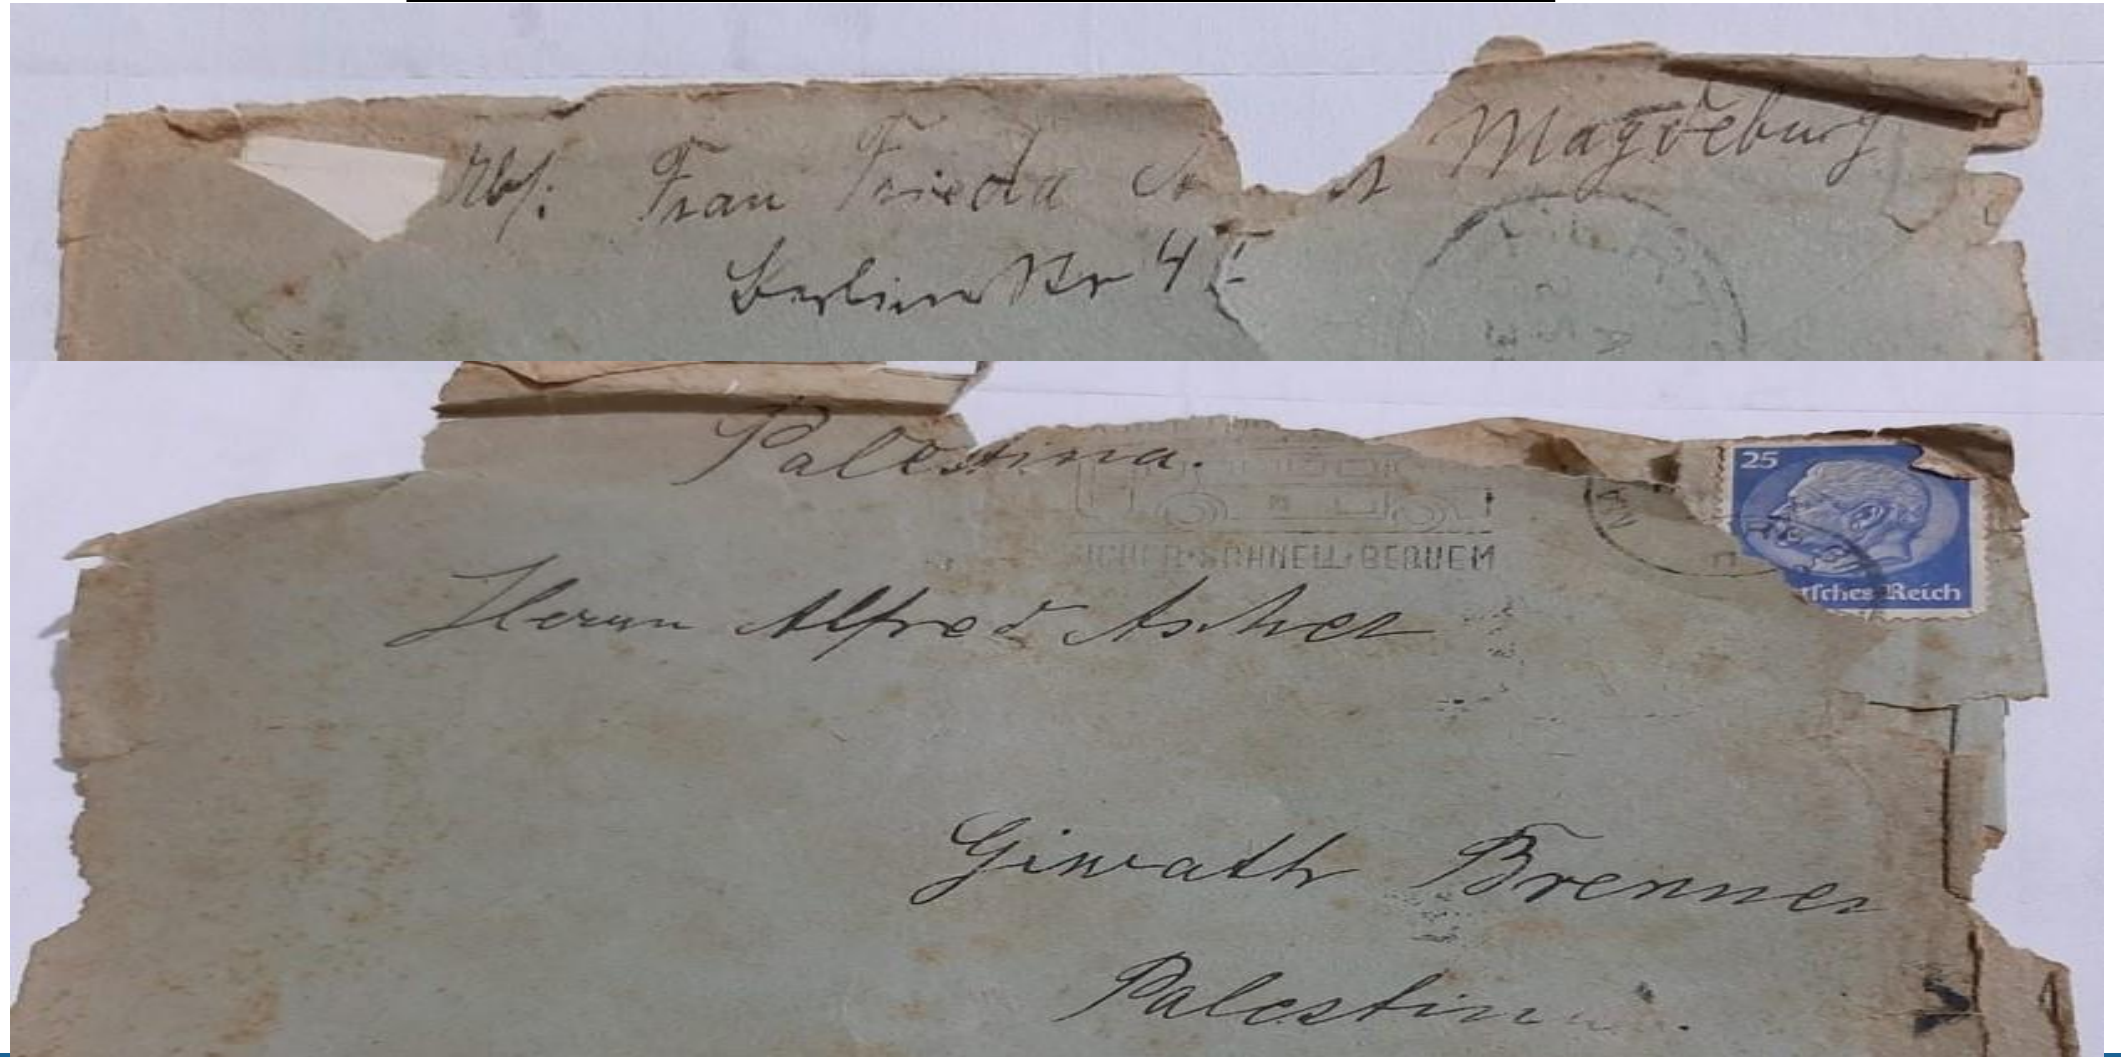 Abs: Frau Frieda Magdeburg
Berliner Str 4
Palestina.
25
SCHNELL · BEQUEM
tsches Reich
Herrn Alfred Ascher
Giwath Brenner
Palestin